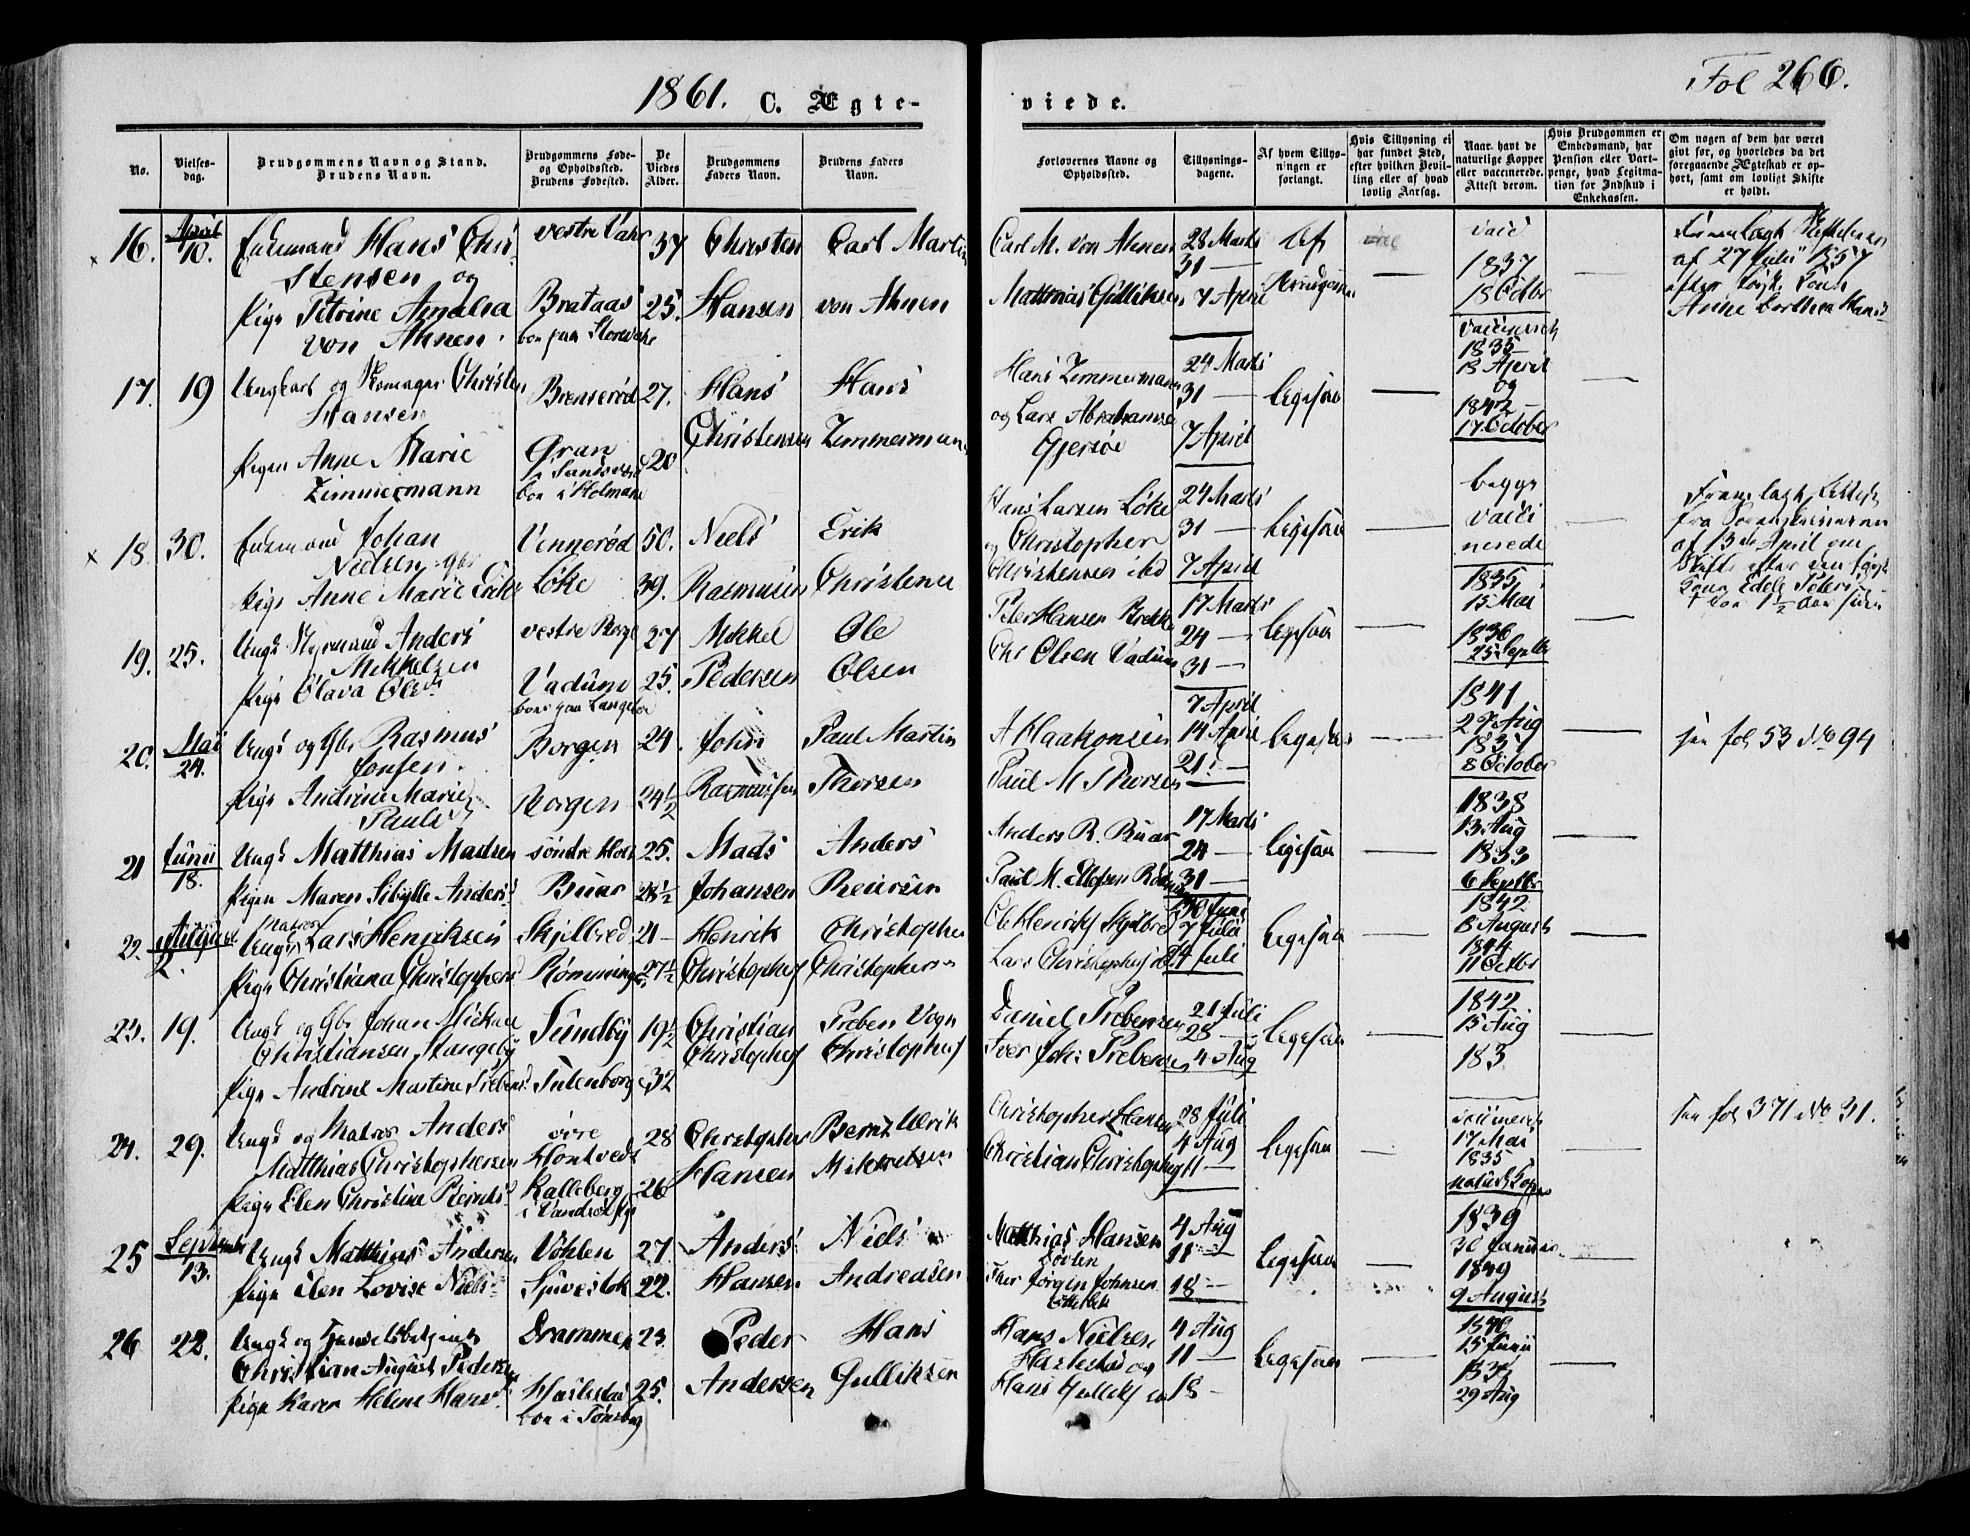 1861. C. Ægte-
viede.
Fol 266.
No.
Vielses-
dag.
Brudgommens Navn og Stand.
Brudens Navn.
Brudgommens Føde-
og Opholdssted.
Brudens Fødested.
De
Viedes
Alder.
Brudgommens
Faders Navn.
Brudens Faders
Navn.
Forlovernes Navne og
Opholdssted.
Tillysnings-
dagene.
Af hvem Tillys-
ningen er
forlangt.
Hvis Tillysning ei
har fundet Sted,
efter hvilken Bevil-
ling eller af hvad
lovlig Aarsag.
Naar havt de
naturlige Kopper
eller vaccinerede.
Attest derom.
Hvis Brudgommen er
Embedsmand, har
Pension eller Vart-
penge, hvad Legitima-
tion for Indskud i
Enkekassen.
Om nogen af dem har været
givt før, og hvorledes da det
foregaaende Ægteskab er op-
hørt, samt om lovligt Skifte
er holdt.
16. April 10. Enkemand Hans Chri-
stensen og
Pige Petrine Amalia
von Ahnen.
Brataas
37
25.
Christen
Hansen
Carl Martin
von Ahnen
Carl M. von Ahnen
Matthias Gulliksen
28 Marts
31 —
7 April
1837
18 Octbr
af 27 Juli 1857
17. 19 Ungkarl og Skomager Christen
Hansen
Pigen Anne Marie
Zimmermann
Brenserød
Gran
27.
20
Hans
Christensen
Hans
Zimmermann
Hans Zimmermann
og Lars Abrahamsen
Gjersøe
24 Marts
31 —
7 April
Ligesaa
1835
13 April
og
1842 —
17 October
18 30. Enkemand Johan
Nielsen
Pige Anne Marie
Vennerød
Løke
50.
39.
Niels
Rasmusen
Erik
Christensen
Hans Larsen Løke
og Christopher
Christensen ibd
24 Marts
31 —
7 April
Ligesaa
begge
vacci
nerede
af 13de April om
19. 25. Ungk Styrmand Anders
Mikkelsen
Pige Olava Olsd.
vestre Borge
Vadum
27
25.
Mikkel
Pedersen
Ole
Olsen
Peter Hansen
Chr Olsen Vadum
17 Marts
24 —
31 —
Ligesaa
1835
15 Mai
1836
25 Septbr
20. Mai 24. Ungk og Gbr Rasmus
Johsen.
Pige Andrine Marie
Pauls
Borgen
Borgen
24.
24½
John
Rasmussen
Paul Martin
Thorsen
A Haakonsen
Paul M Thorsen
7 April
14 April
21 —
Ligesaa
1841
27 Aug
1837
8 October
see fol 53 No 94
21 Junii 18. Ungk Matthias Madsen
Pigen Maren Sibylle Anders
søndre
Buar
25.
28½
Mads
Johansen
Anders
Anders R. Buar
Paul M. Ellefsen
17 Marts
24 —
31 —
Ligesaa
1838
13 Aug
1833
6 Septbr
22. August 2. Ungk Matros Lars Henriksen
Pige Christiana Christophers
Skjelbred
Rømminge
21 —
27½
Henrik
Christophers
Christopher
Christophersen
Ole Henriks Skjelbred
Lars Christophs
30 Juni
7 Juli
14 Juli
Ligesaa
1842
8 August
1844
11 Octbr
23. 19. Ungk og Gbr Johan Mickael
Christiansen Stangeby
Pige Andrine Martine Prebens
Sundby
19½
32
Christian
Christophs
Preben Vogn
Christophs
Daniel Prebensen
Iver Joh. Prebensen
21 Juli
28 —
4 Aug
Ligesaa
1842
15 Aug
183
24. 29. Ungk og Matros Anders
Matthias Christophersen
Pige Elen Christine Bernts
øvre
Hontvedt
Kalleberg
28
26
Christopher
Hansen
Bernt Ulrik
Mikkelsen
Christopher Hansen
Christian Christophs
28 Juli
4 Aug
11 —
Ligesaa
17 Mai
1835
see fol 371 No 31.
25 September 13. Ungk Matthias Andersen
Pige Elen Lovise Niels
27.
22.
Anders
Hansen
Niels
Andreasen
Matthias Hansen
Jørgen Johnsen
4 Aug
11 —
18 —
Ligesaa
1839
30 Januar
1849
9 August
26 22. Ungk og
Christian August Pedersen
Pige Karen Helene Hans
Drammen
Haslestad
boe i Tønsberg
23.
25.
Peder
Andersen
Hans
Gulliksen
Hans Nielsen
Haslestad og
Hans
4 Aug
11 —
18 —
Ligesaa
1840
15 Junii
29 Aug